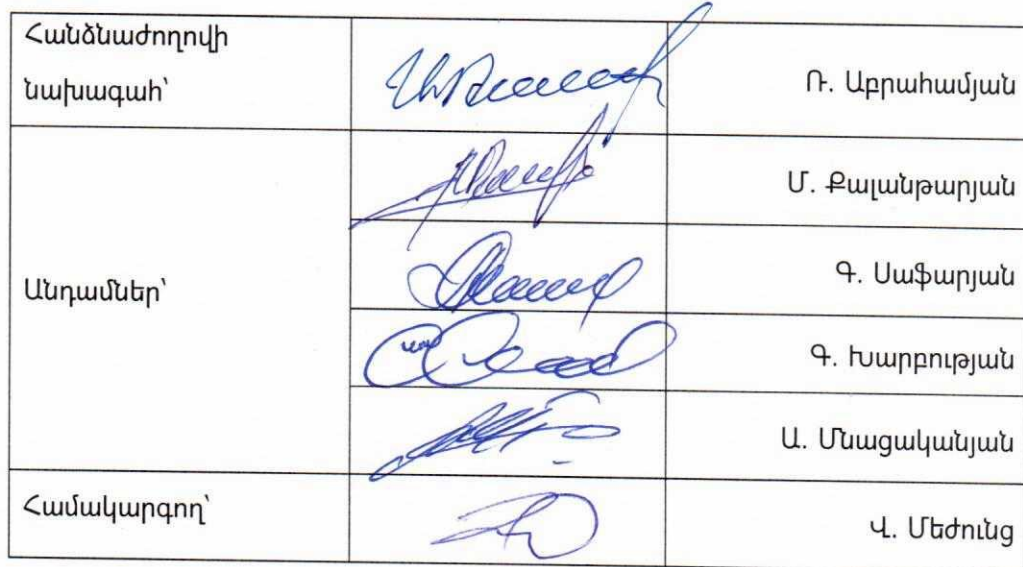 Հանձնաժողովի
նախագահ՝
Ռ. Աբրահամյան
Մ. Քալանթարյան
Անդամներ՝
Գ. Սաֆարյան
Գ. Խարբության
Ա. Մնացականյան
Համակարգող՝
Վ. Մեժունց